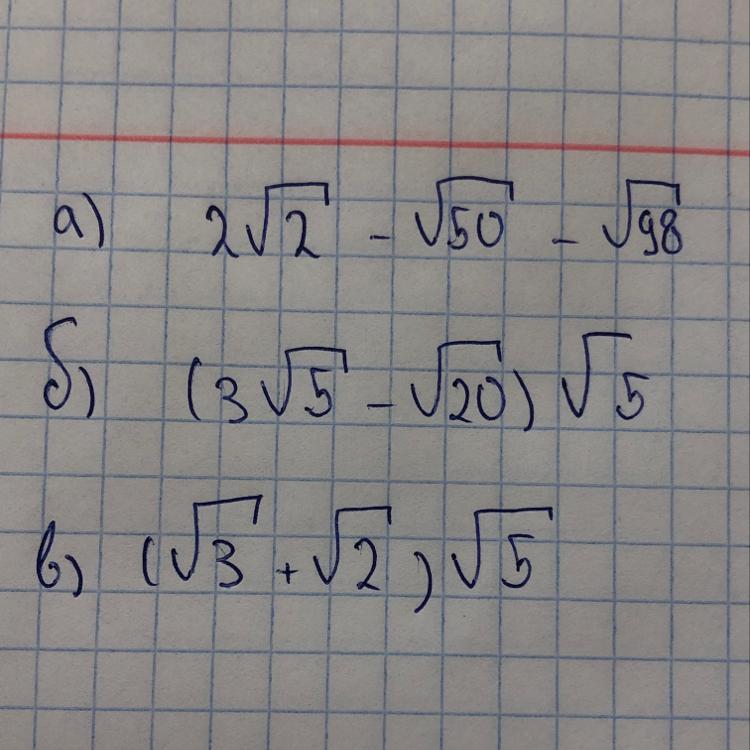 а) 2√2 - √50 - √98
б) (3√5 - √20) √5
в) (√3 + √2) √5